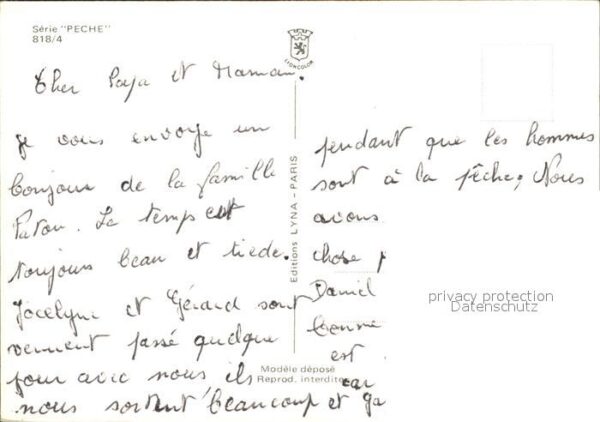 Série "PECHE"
818/4
LYONCOLOR
Cher Papa et Maman.
je vous envoye un
bonjour de la famille
Paton. Le temps est
toujours beau et tiede.
Jocelyne et Gérard sont
vennent passé quelque
jour avec nous ils
nous sortent beaucoup et ça
Editions LYNA - PARIS
Modèle déposé
Reprod. interdite
pendant que les hommes
sont à la pêche, Nous
avons
chose
Daniel
bonne
est
car
privacy protection
Datenschutz